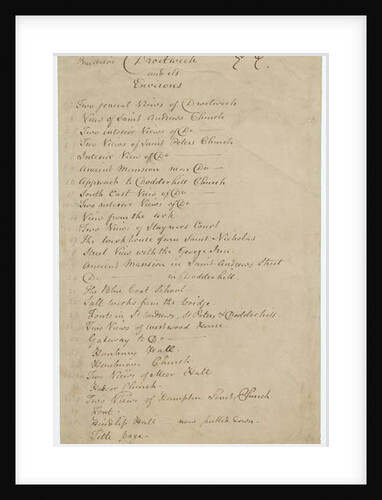 Droitwich
and its
Environs
Two general Views of Droitwich
View of Saint Andrews Church
Two interior Views of Do
Two Views of Saint Peters Church
Interior View of Do
Ancient Mansion near Do
Approach to Dodderhill Church
South East View of Do
Two interior Views of Do
View from the
Two Views of Stayners Court
The workhouse from Saint Nicholas
Street View with the George Inn
Ancient Mansion in Saint Andrews Street
Do in Dodderhill
The Blue Coat School
Salt works from the bridge
Fonts in St Andrews, St Peters & Dodderhill
Two Views of Westwood House
Gateway to Do
Hanbury Hall
Hanbury Church
Two Views of Meer Hall
Church
Two Views of Hampton Church
Font
Hindlip Hall now pulled down
Title page